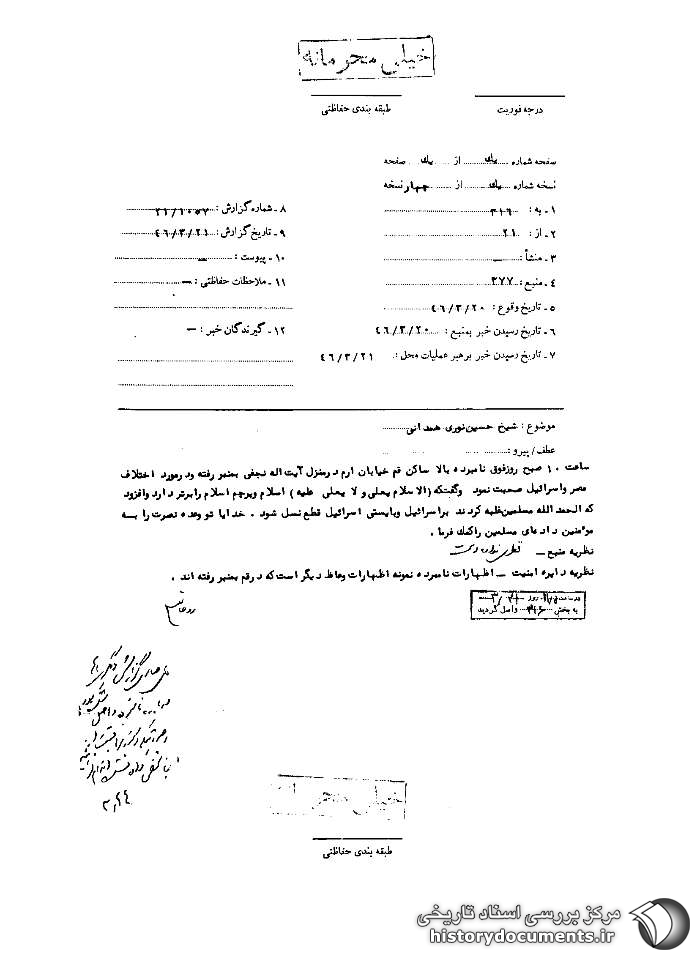 خیلی محرمانه
درجه فوریت
طبقه بندی حفاظتی
صفحه شماره یک از یک صفحه
نسخه شماره یک از چهار نسخه
۱ـ به : ۳۱۶
۲ـ از : ۲۱
۳ـ منشأ : ـ
۴ـ منبع : ۳۷۷
۵ـ تاریخ وقوع : ۴۶/۳/۲۰
۶ـ تاریخ رسیدن خبر بمنبع : ۴۶/۳/۲۰
۷ـ تاریخ رسیدن خبر برهبر عملیات محل : ۴۶/۳/۲۱
۸ـ شماره گزارش : ۲۱/۱۰۵۷
۹ـ تاریخ گزارش : ۴۶/۳/۲۱
۱۰ـ پیوست : ـ
۱۱ـ ملاحظات حفاظتی : ـ
۱۲ـ گیرندگان خبر : ـ
موضوع : شیخ حسین نوری همدانی
عطف/ پیرو :
ساعت ۱۰ صبح روزفوق نامبرده بالا ساکن قم خیابان ارم درمنزل آیت اله نجفی بمنبر رفته ودرمورد اختلاف
مصر واسرائیل صحبت نمود وگفتکه (الاسلام یعلی و لا یعلی علیه) اسلام وپرچم اسلام رابرتر دارد وافزود
که الحمد الله مسلمین غلبه کردند براسرائیل وبایستی اسرائیل قطع نسل شود . خدایا تو وعده نصرت را به
مومنین داده‌ای مسلمین راکمک فرما .
نظریه منبع ـ
نظریه دایره امنیت ـ اظهارات نامبرده نمونه اظهارات وعاظ دیگر است که درقم بمنبر رفته اند .
به بخش ۳۱۶ واصل گردید
خیلی محرمانه
طبقه بندی حفاظتی
مرکز بررسی اسناد تاریخی
historydocuments.ir